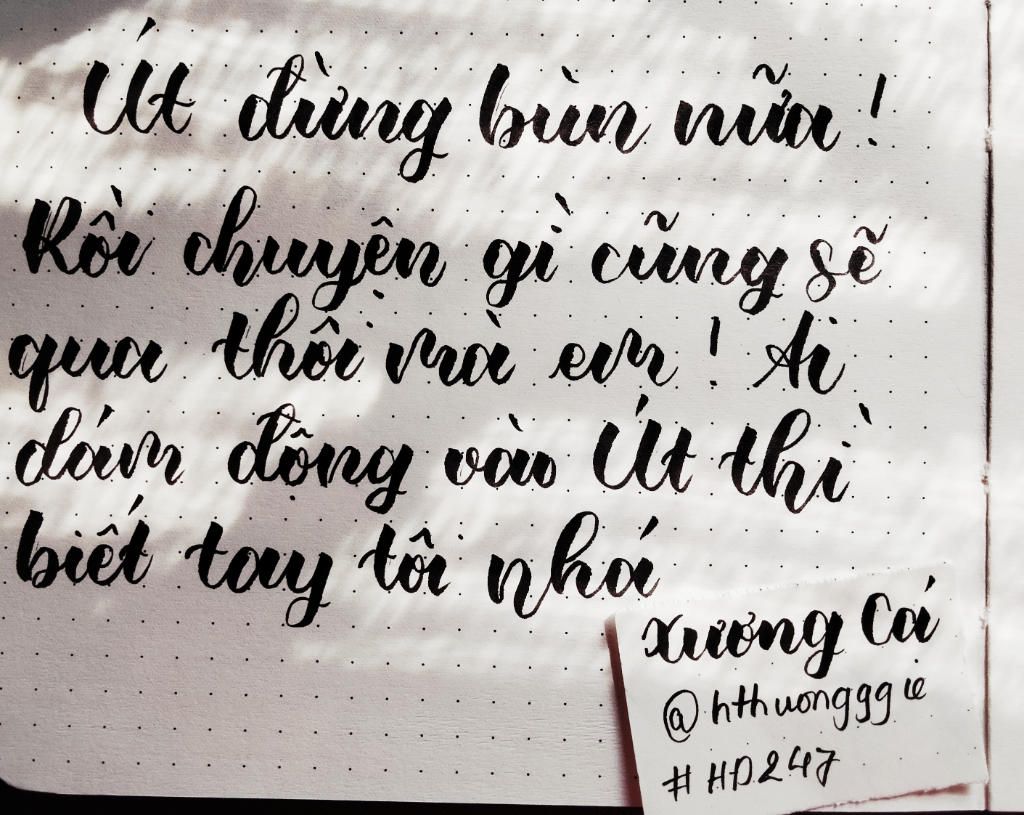 Út đừng bùn nữa !
Rồi chuyện gì cũng sẽ
qua thôi mà em ! Ai
dám động vào Út thì
biết tay tôi nhá
Xương Cá
@hthuongggie
#HD247